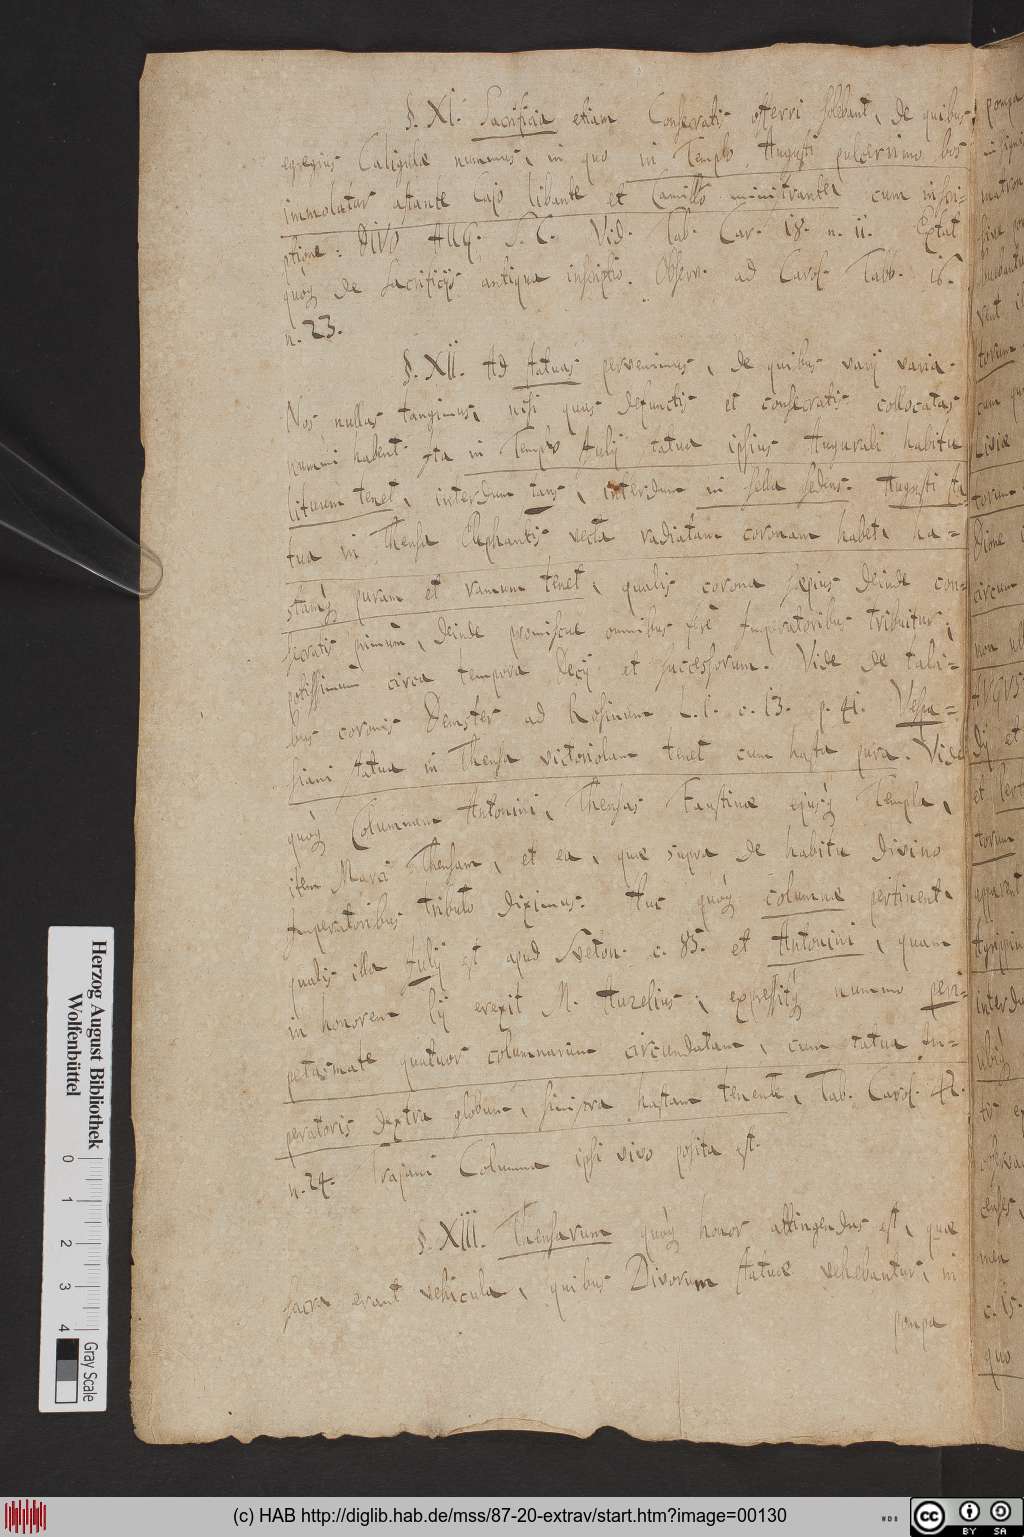 §. XI. Sacrificia etiam Consecratis offerri solebant, de quibus
egregius Caligulæ nummus, in quo in Templo Augusti pulcerrimo bos
immolatur astante Cajo libante et Camillo ministrante, cum inscri=
ptione: DIVO AUG. S. C. Vid. Tab. Car. 18. n. 11. Extat
quoq de Sacrificijs antiqua inscriptio. Observ. ad Carol. Tabb. 16.
n. 23.
§. XII. Ad statuas pervenimus, de quibus varij varia.
Nos nullas tangimus, nisi quas defunctis et consecratis collocatas
nummi habent. Ita in Templo Julij statua ipsius Augurali habitu
lituum tenet, interdum stans, interdum in sella sedens. Augusti sta=
tua in Thensa Elephantis vecta radiatam coronam habet, ha=
stamq puram et ramum tenet, qualis corona sæpius deinde con=
secratis primum, deinde promiscue omnibus ferè Imperatoribus tribuitur,
potissimum circa tempora Decij et successorum. Vide de tali=
bus coronis Demster ad Rosinum L. 1. c. 13. p. 41. Vespa=
siani statua in Thensa victoriolam tenet cum hasta pura. Vide
quoq Columnam Antonini, Thensas Faustinæ ejusq Templa,
item Marci Thensam, et ea, quæ supra de habitu divino
Imperatoribus tributo diximus. Huc quoq columnæ pertinent,
qualis illa Julij est apud Sveton. c. 85. et Antonini, quam
in honorem ejus erexit M. Aurelius, expressitq nummo peri=
petasmate quatuor columnarum circundatam, cum statua Im=
peratoris dextra globum, sinistra hastam tenente, Tab. Carol. 42.
n. 24. Trajani Columna ipsi vivo posita est.
§. XIII. Thensarum quoq honor attingendus est, quæ
sacra erant vehicula, quibus Divorum statuæ vehebantur, in
pompa
pompa
matron
torum
cum
Liviæ
torum
Dione
circum
non
AVGVS
Dij et
et
torum
apparent
Agrippin
interdu
ubiq
observa
censes,
men
c. 15.
quo
Herzog August Bibliothek
Wolfenbüttel
0 1 2 3 4
Gray Scale
(c) HAB http://diglib.hab.de/mss/87-20-extrav/start.htm?image=00130
cc BY SA